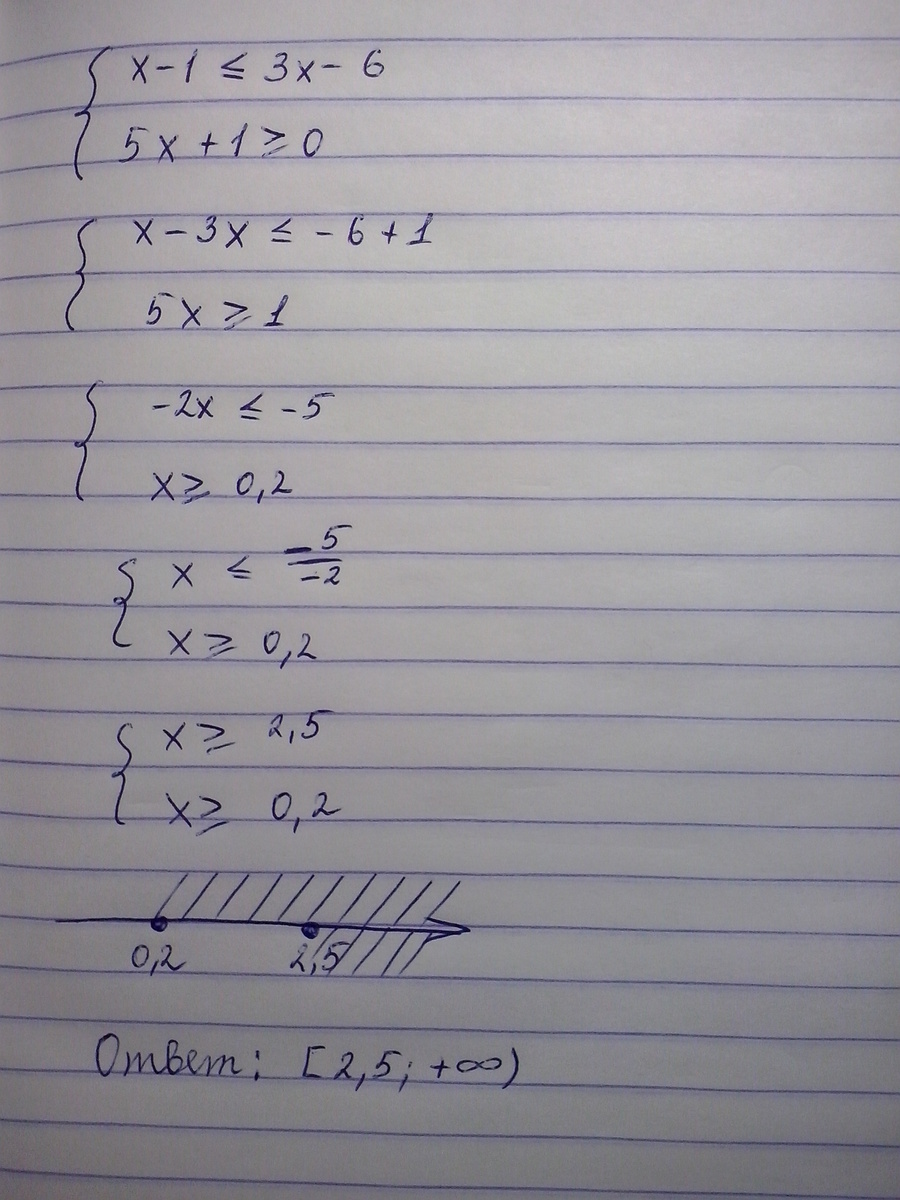 x-1 ≤ 3x- 6
5x +1 ≥ 0
x-3x ≤ -6+1
5x ≥ 1
-2x ≤ -5
x ≥ 0,2
x ≤ -5/-2
x ≥ 0,2
x ≥ 2,5
x ≥ 0,2
0,2 2,5
Ответ: [2,5; +∞)